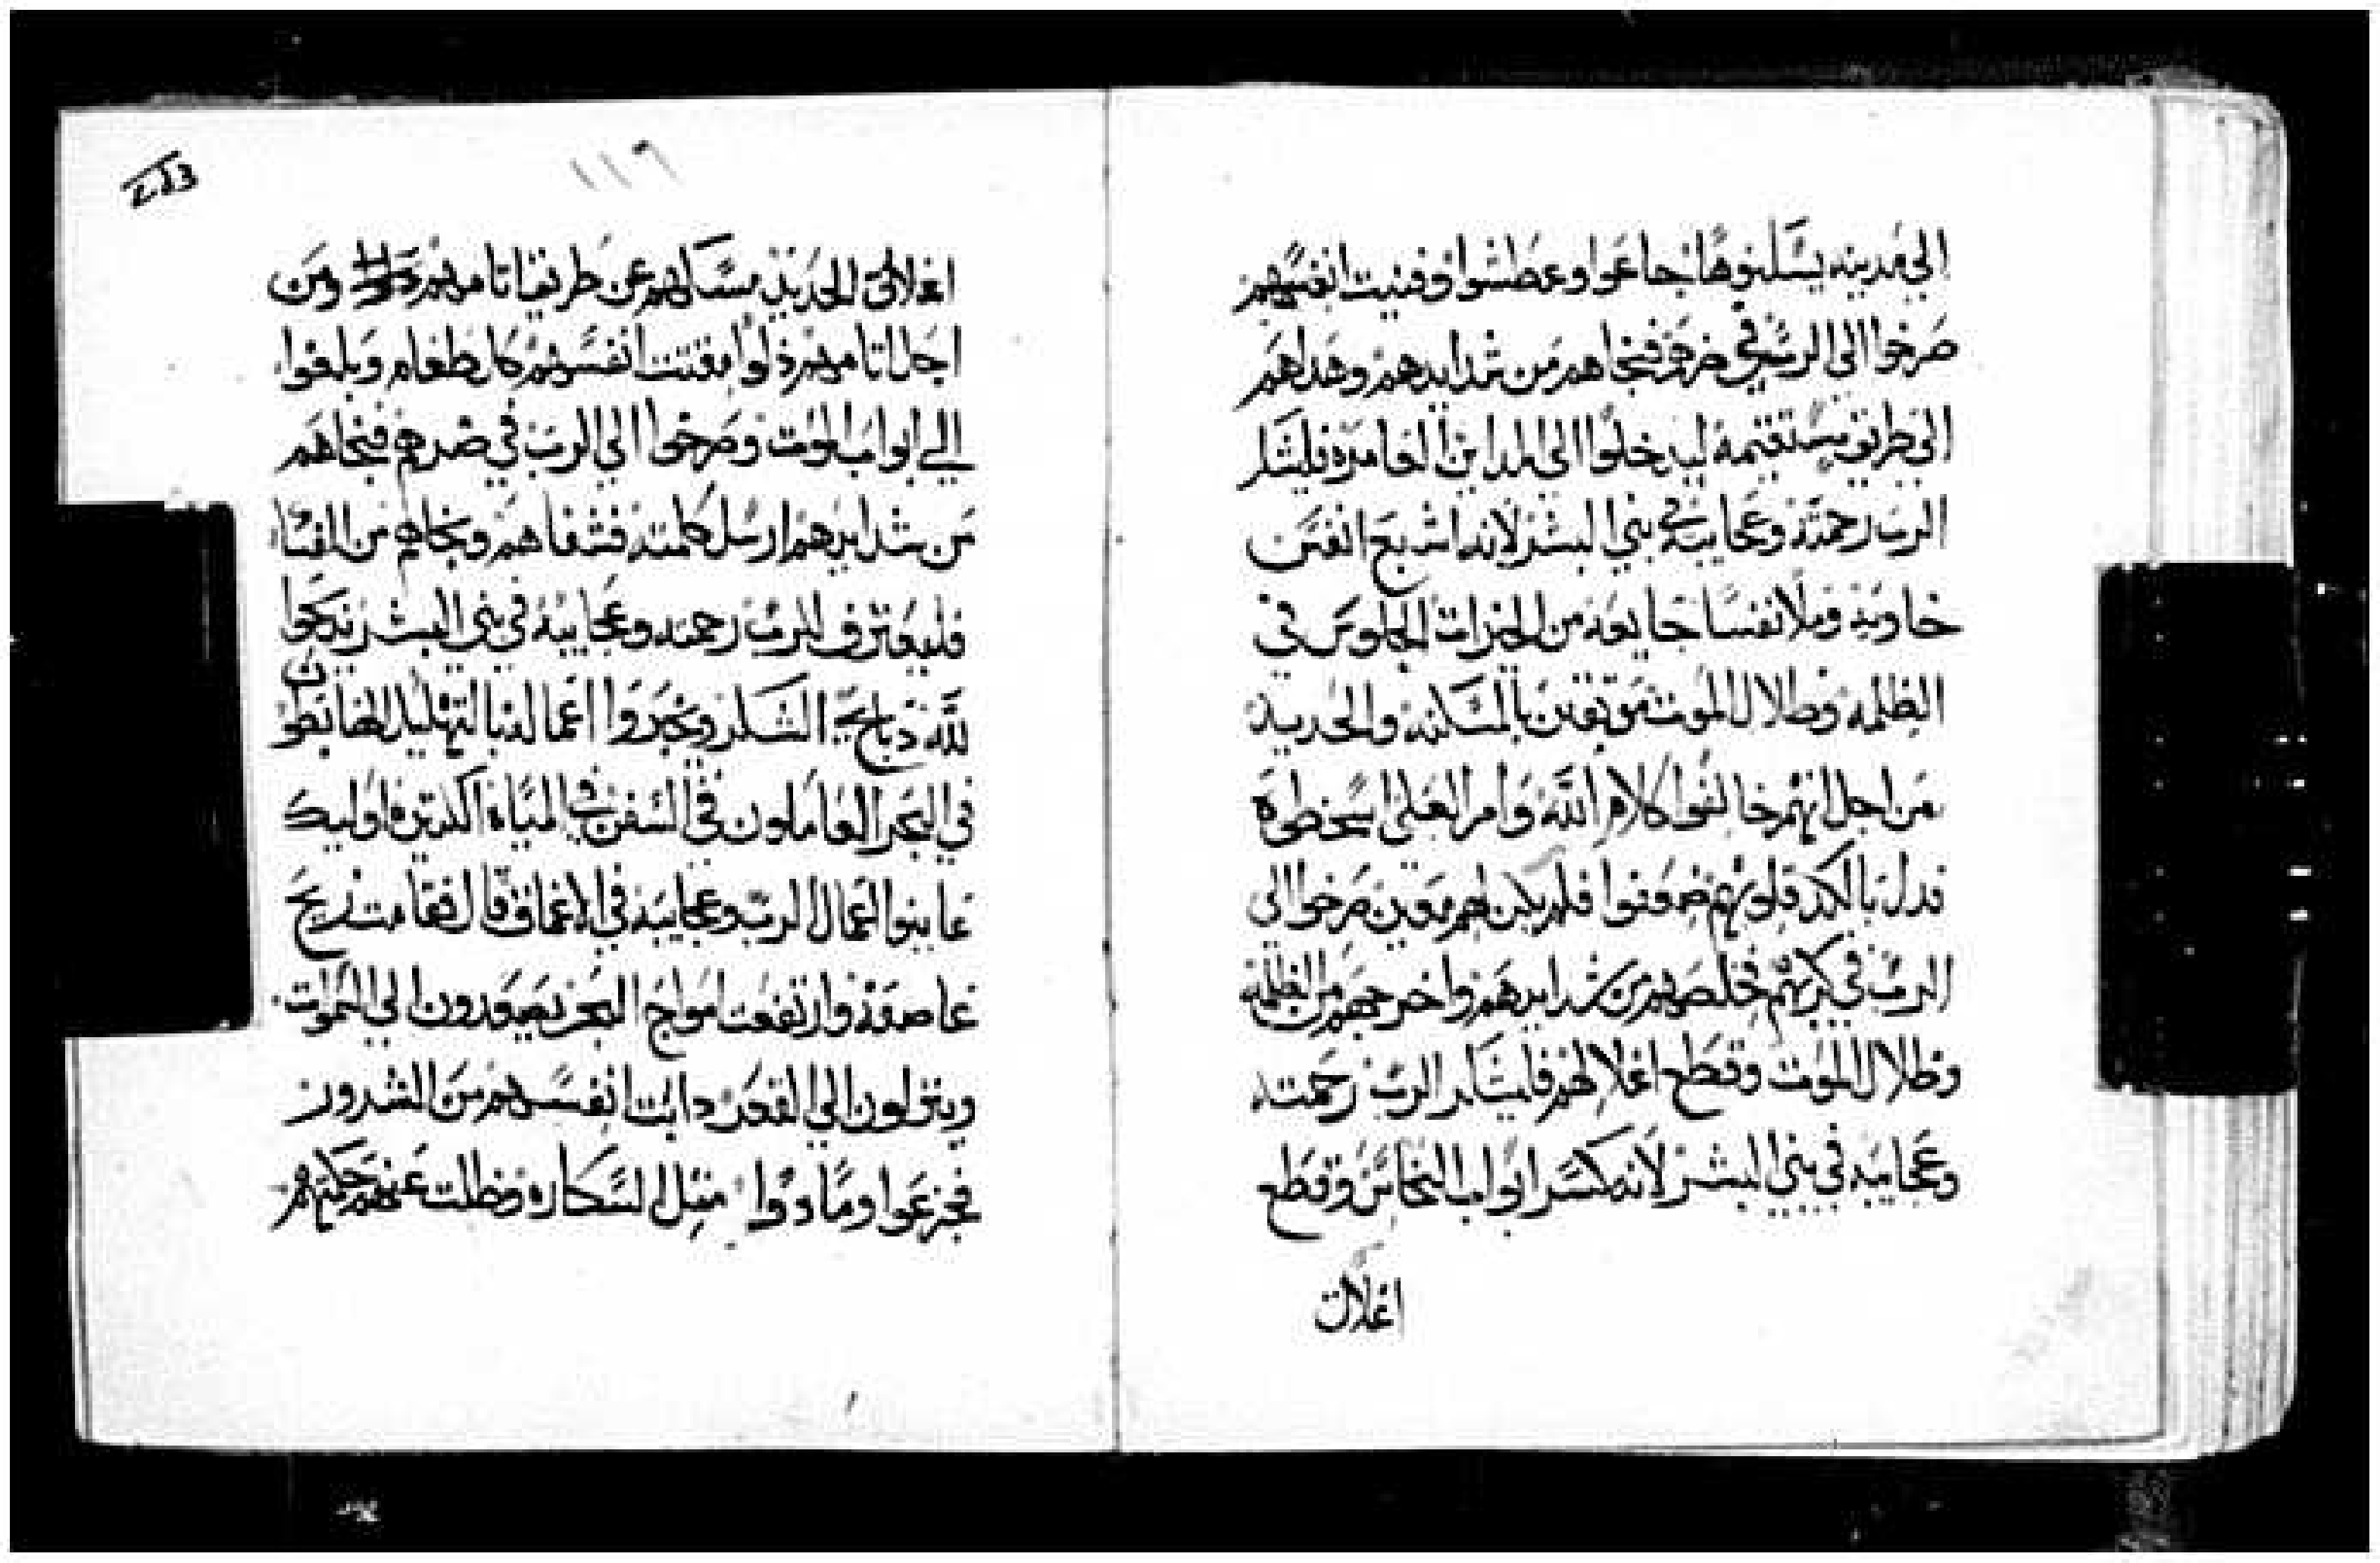 الي مدينه يسكنوها جاعوا وعطشوا وفنيت انفسهم
صرخوا الي الرب في ضرهم فنجاهم من شدايدهم وهداهم
الي طريق مستقيمه ليدخلوا الي المداين العامره فليشكر
الرب رحمته وعجايبه في بني البشر لانه اشبع انفس
خاويه وملا نفسا جايعه من الخيرات الجلوس في
الظلمه وظلال الموت موثوقين بالمسكنه والحديد
من اجل انهم خالفوا كلام الله وامر العلي اسخطوه
فدل بالكد قلوبهم ضعفوا فلم يكن لهم معين صرخوا الي
الرب في كربهم فخلصهم من شدايدهم واخرجهم من الظلمه
وظلال الموت وقطع اغلالهم فليشكر الرب رحمته
وعجايبه في بني البشر لانه كسر ابواب النحاس وقطع
اغلاق
١١٩
اغلاق الحديد مسكهم عن طريق اتامهم ومن
اجل اتامهم ذلوا مقتت انفسهم كل طعام وبلغوا
الي ابواب الموت وصرخوا الي الرب في ضرهم فنجاهم
من شدايدهم ارسل كلمته فشفاهم ونجاهم من الفسا
فليعترف الرب رحمته وعجايبه في بني البشر يذبحوا
لله ذبايح الشكر ويخبروا اعماله بالتهليل الهابطون
في البحر العاملون في السفن في المياه الكثيره اوليك
عاينوا اعمال الرب وعجايبه في الاعماق قال فقامت ريح
عاصفه وارتفعت امواج البحر يصعدون الي السموات
وينزلون الي القعر دابت انفسهم من الشرور
فجزعوا ومادوا مثل السكاره وظلت عنهم حكمتهم